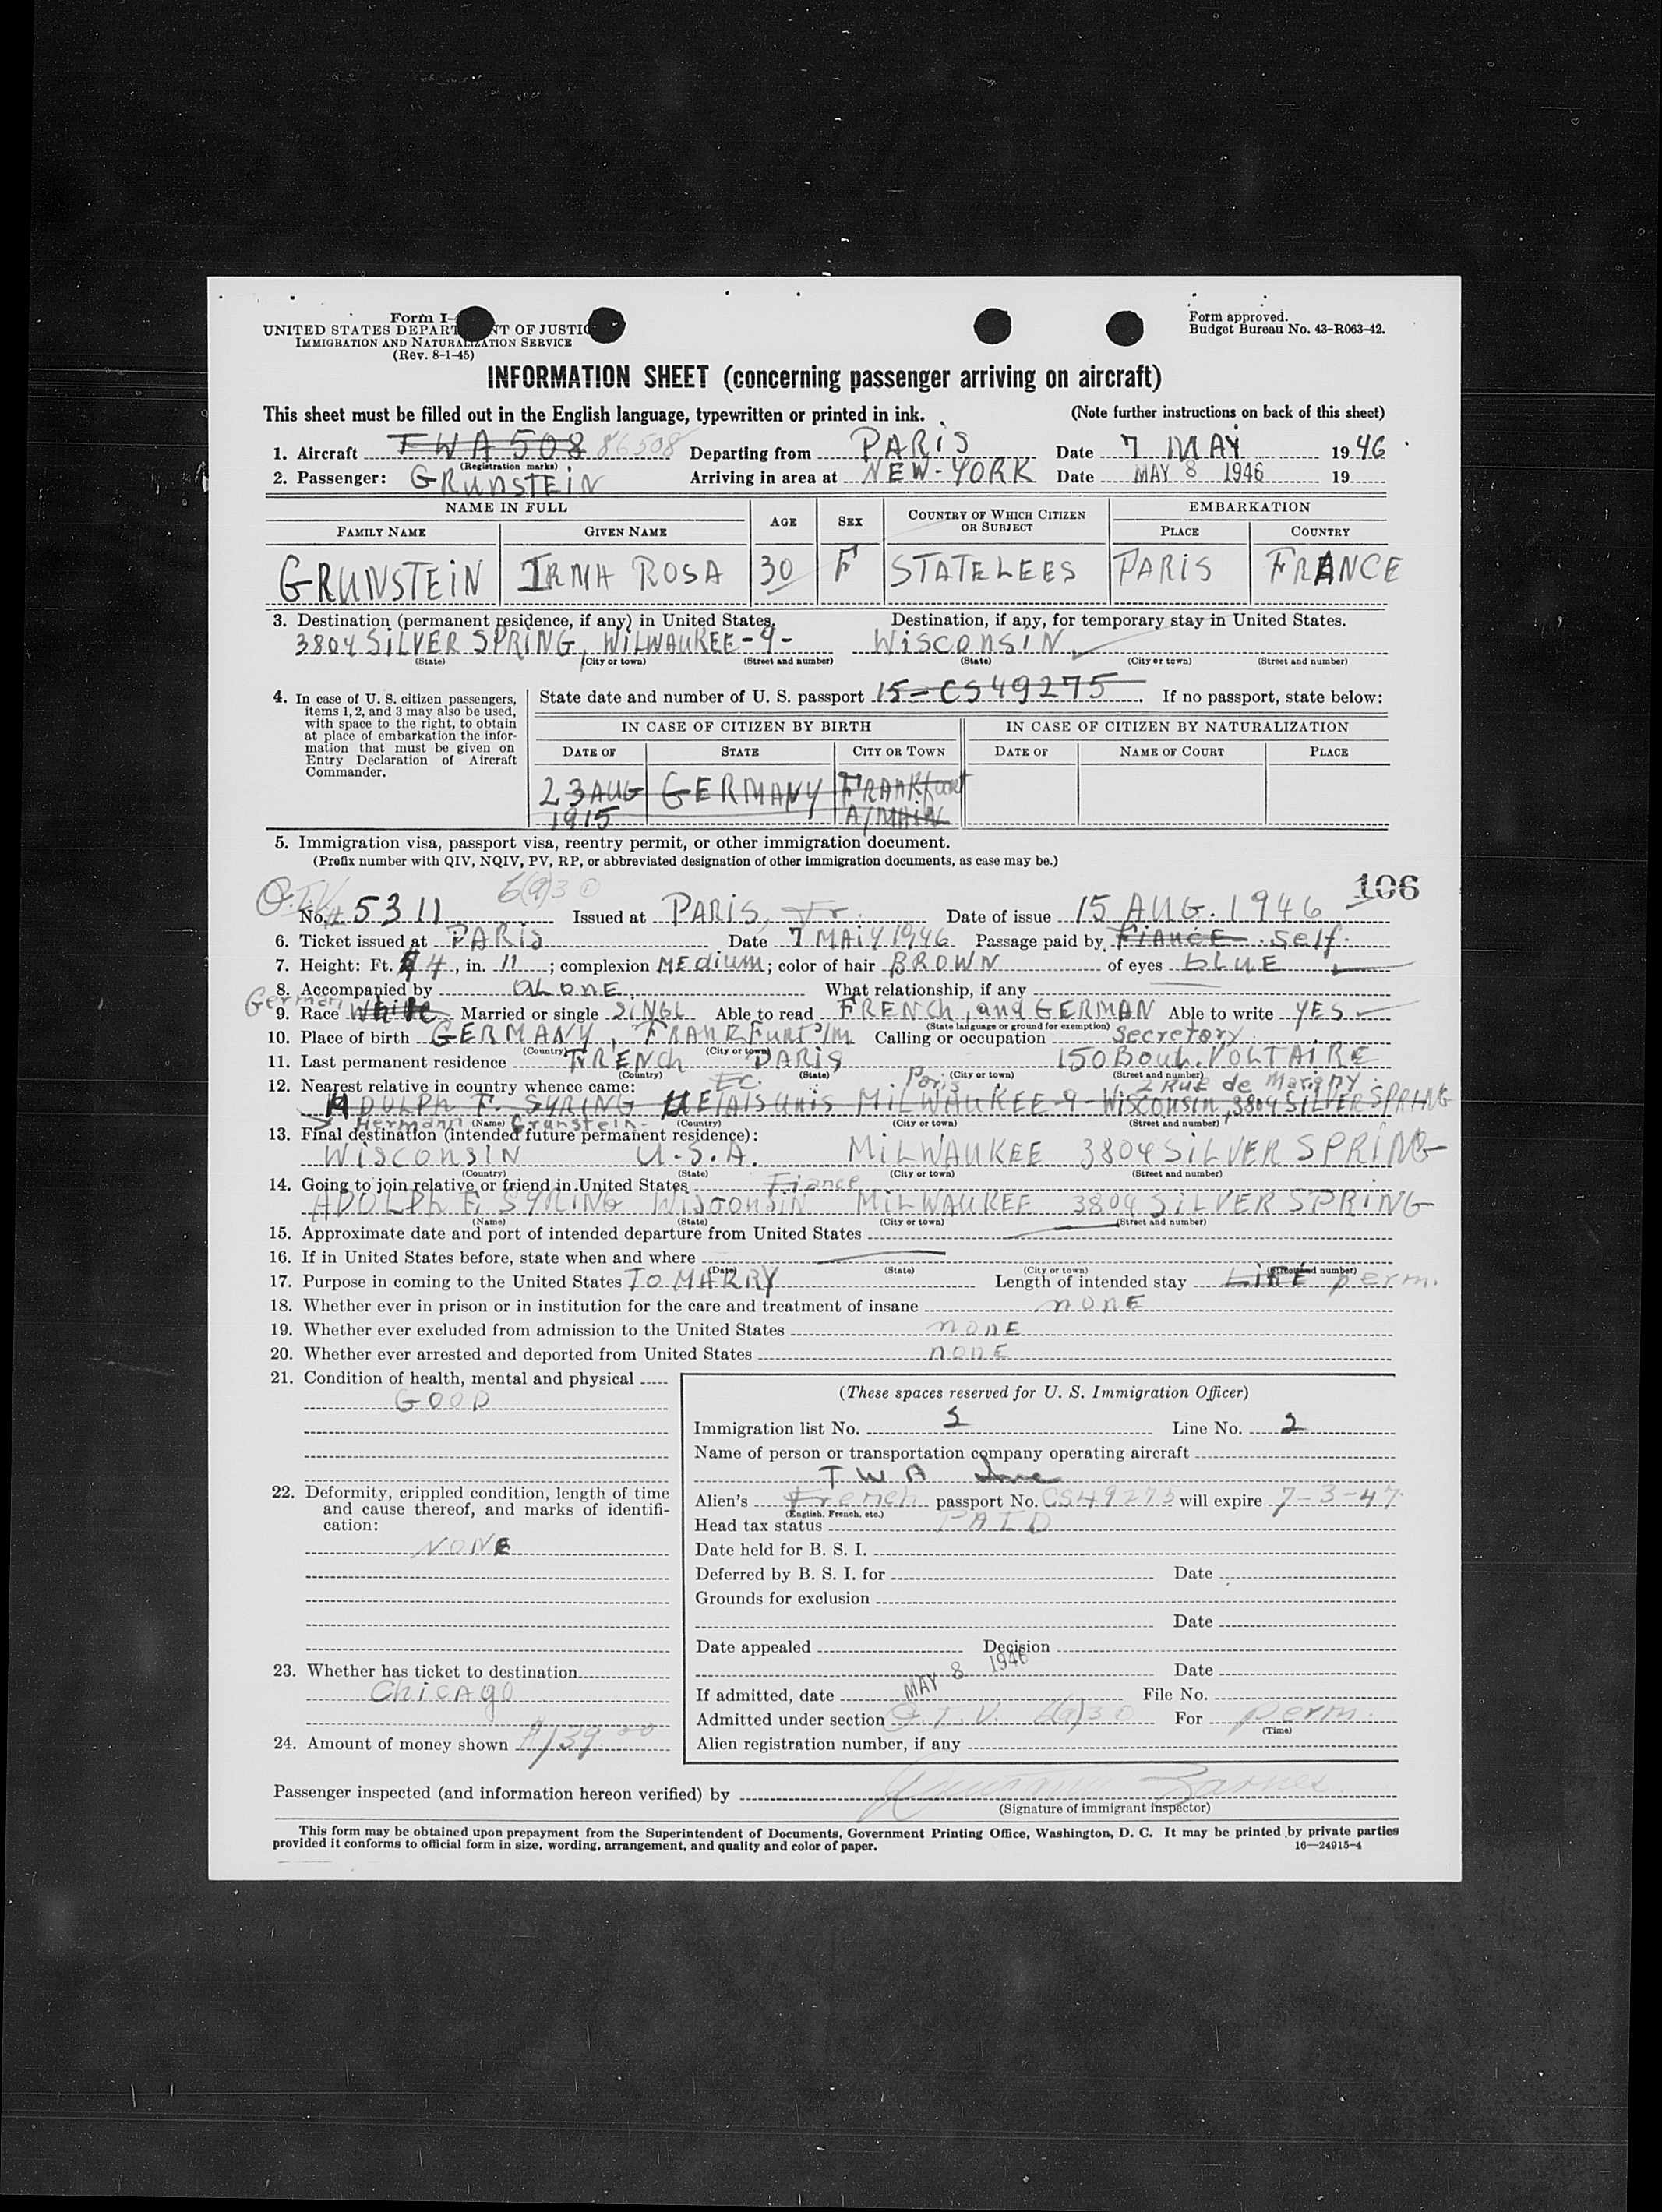 Form I-
UNITED STATES DEPART NT OF JUSTIC
IMMIGRATION AND NATURALIZATION SERVICE
(Rev. 8-1-45)
Form approved.
Budget Bureau No. 43-R063-42.
INFORMATION SHEET (concerning passenger arriving on aircraft)
This sheet must be filled out in the English language, typewritten or printed in ink. (Note further instructions on back of this sheet)
1. Aircraft TWA 508 86508 Departing from PARiS Date 7 MAY 1946
(Registration marks)
2. Passenger: GRUNSTEiN Arriving in area at NEW-YORK Date MAY 8 1946 19
NAME IN FULL AGE SEX COUNTRY OF WHICH CITIZEN OR SUBJECT EMBARKATION
FAMILY NAME GIVEN NAME PLACE COUNTRY
GRUNSTEiN IRMA ROSA 30 F STATELEES PARiS FRANCE
3. Destination (permanent residence, if any) in United States. Destination, if any, for temporary stay in United States.
3804 SiLVER SPRiNG, WiLWAUKEE-9- WiSCONSiN
(State) (City or town) (Street and number) (State) (City or town) (Street and number)
4. In case of U. S. citizen passengers, items 1, 2, and 3 may also be used, with space to the right, to obtain at place of embarkation the information that must be given on Entry Declaration of Aircraft Commander.
State date and number of U. S. passport 15-CS49275 If no passport, state below:
IN CASE OF CITIZEN BY BIRTH IN CASE OF CITIZEN BY NATURALIZATION
DATE OF STATE CITY OR TOWN DATE OF NAME OF COURT PLACE
23 AUG GERMANY FRANKfurt
1915 A/MAiN
5. Immigration visa, passport visa, reentry permit, or other immigration document.
(Prefix number with QIV, NQIV, PV, RP, or abbreviated designation of other immigration documents, as case may be.)
106
Q.I.V. 6(a)3
No. # 5311 Issued at PARiS, Fr. Date of issue 15 AUG. 1946
6. Ticket issued at PARiS Date 7 MAiY 1946 Passage paid by FiANCE self.
7. Height: Ft. 4, in. 11; complexion MEdiUM; color of hair BROWN of eyes bLUE
8. Accompanied by ALONE What relationship, if any
German
9. Race White Married or single SiNGL Able to read FRENCh, and GERMAN Able to write YES
(State language or ground for exemption)
10. Place of birth GERMANY, FRANKFurt a/m Calling or occupation Secretary
(Country) (City or town)
11. Last permanent residence FRENCh PARiS 150 Boul. VOLTAIRE
(Country) (State) (City or town) (Street and number)
12. Nearest relative in country whence came: Fr. Paris 2 Rue de Marigny
ADOLPh F. SYRiNG ETATS UNiS MiLWAUKEE-9-Wisconsin, 3804 SiLVER SPRiNG
Hermann Grunstein
(Name) (Country) (City or town) (Street and number)
13. Final destination (intended future permanent residence):
WiSCONSiN U.S.A. MiLWAUKEE 3804 SiLVER SPRiNG
(Country) (State) (City or town) (Street and number)
14. Going to join relative or friend in United States Fiance
ADOLPh F. SYRiNG WisconsiN MiLWAUKEE 3804 SiLVER SPRiNG
(Name) (State) (City or town) (Street and number)
15. Approximate date and port of intended departure from United States
16. If in United States before, state when and where
(Date) (State) (City or town) (Street and number)
17. Purpose in coming to the United States TO MARRY Length of intended stay LiFE perm.
18. Whether ever in prison or in institution for the care and treatment of insane nonE
19. Whether ever excluded from admission to the United States nonE
20. Whether ever arrested and deported from United States nonE
21. Condition of health, mental and physical
GOOD
22. Deformity, crippled condition, length of time and cause thereof, and marks of identification:
NONE
23. Whether has ticket to destination
ChiCAgO
24. Amount of money shown $139.00
(These spaces reserved for U. S. Immigration Officer)
Immigration list No. 5 Line No. 2
Name of person or transportation company operating aircraft
TWA Inc
Alien's French passport No. CS49275 will expire 7-3-47
(English, French, etc.)
Head tax status PAID
Date held for B. S. I.
Deferred by B. S. I. for Date
Grounds for exclusion
Date
Date appealed Decision
Date
If admitted, date MAY 8 1946 File No.
Admitted under section Q.I.V. 6(a)3 For perm.
(Time)
Alien registration number, if any
Passenger inspected (and information hereon verified) by
(Signature of immigrant inspector)
This form may be obtained upon prepayment from the Superintendent of Documents, Government Printing Office, Washington, D. C. It may be printed by private parties
provided it conforms to official form in size, wording, arrangement, and quality and color of paper. 16—24915-4